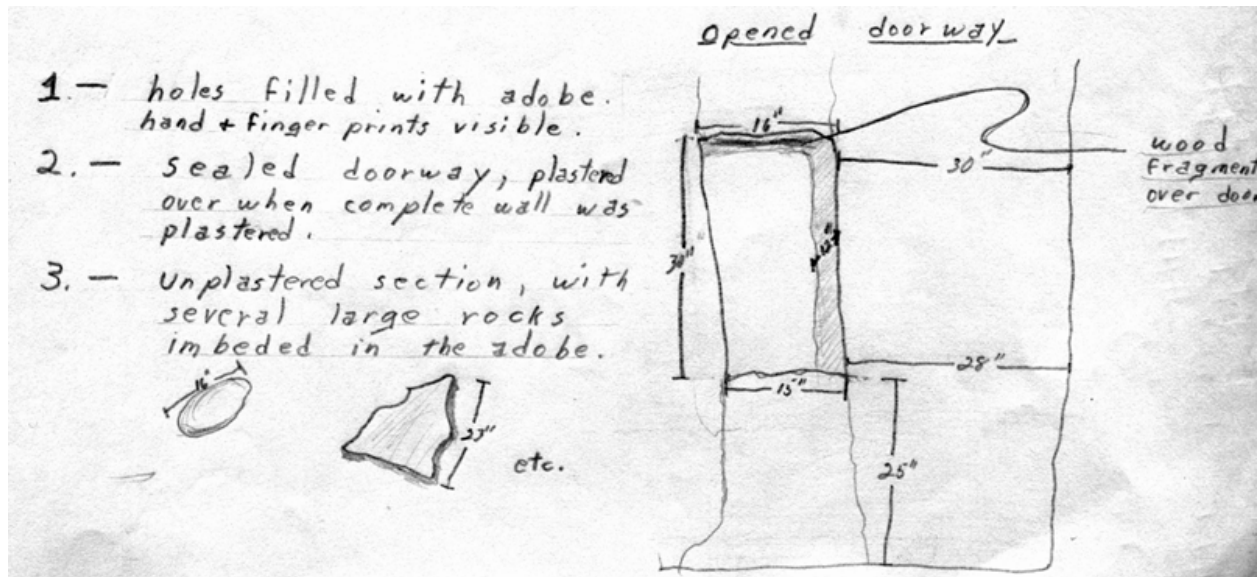 1. — holes filled with adobe.
hand + finger prints visible.
2. — sealed doorway, plasterd
over when complete wall was
plastered.
3. — unplastered section, with
several large rocks
imbeded in the adobe.
16"
23"
etc.
Opened doorway
16"
30"
wood
fragment
over door
28"
15"
25"